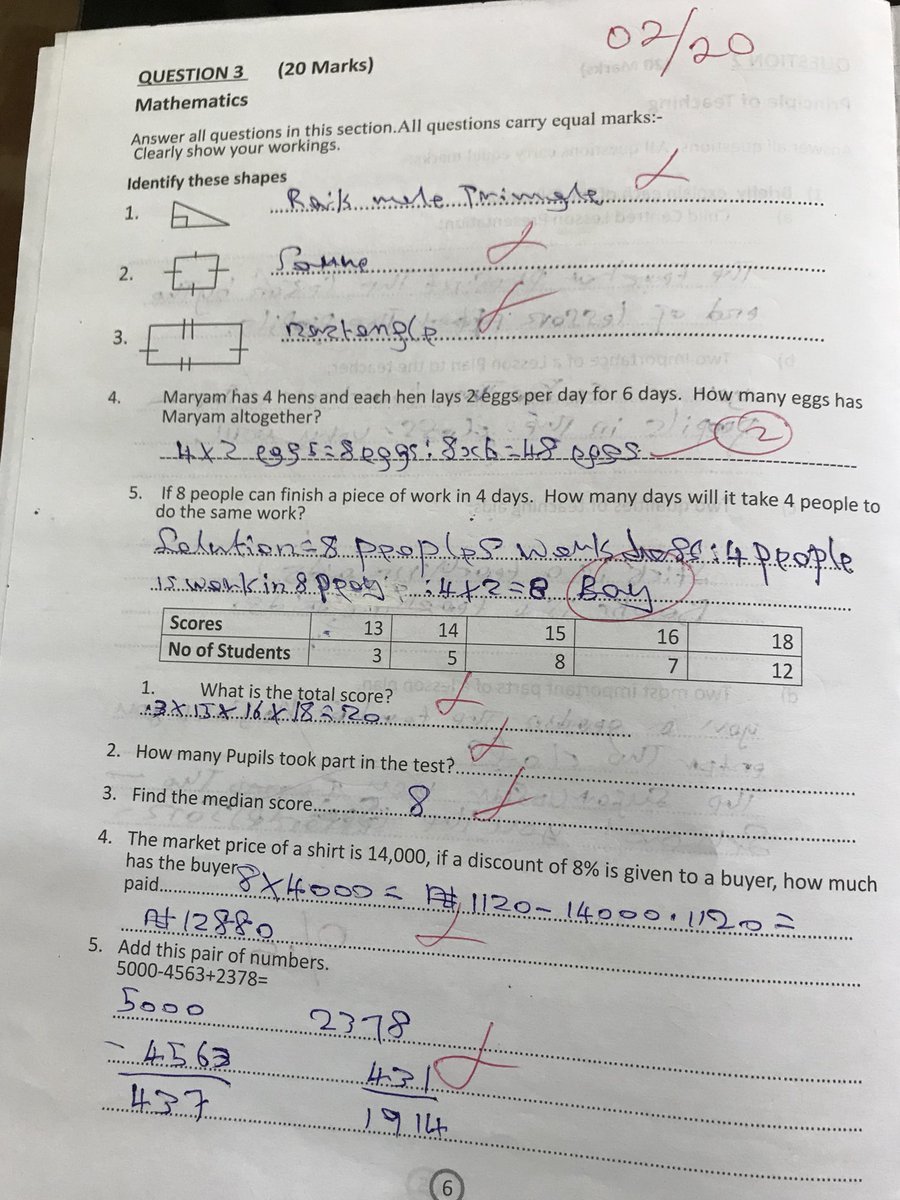 02/20
QUESTION 3 (20 Marks)
Mathematics
Answer all questions in this section.All questions carry equal marks:-
Clearly show your workings.
Identify these shapes
1. Raik mele Trimgle
2.
3. Rectangle
4. Maryam has 4 hens and each hen lays 2 eggs per day for 6 days. How many eggs has
Maryam altogether?
4x2 eggs=8eggs: 8x6=48 eggs. 2
5. If 8 people can finish a piece of work in 4 days. How many days will it take 4 people to
do the same work?
Solution=8 peoples work :4 people
is work in 8 :4x2=8 Bay
Scores 13 14 15 16 18
No of Students 3 5 8 7 12
1. What is the total score?
X 15 X 16 X 18 = 20
2. How many Pupils took part in the test?
3. Find the median score 8
4. The market price of a shirt is 14,000, if a discount of 8% is given to a buyer, how much
has the buyer
paid 8X4000 = ₦ 1120- 14000.1120=
₦12880
5. Add this pair of numbers.
5000-4563+2378=
5000 2378
- 4563 431
437 1914
6